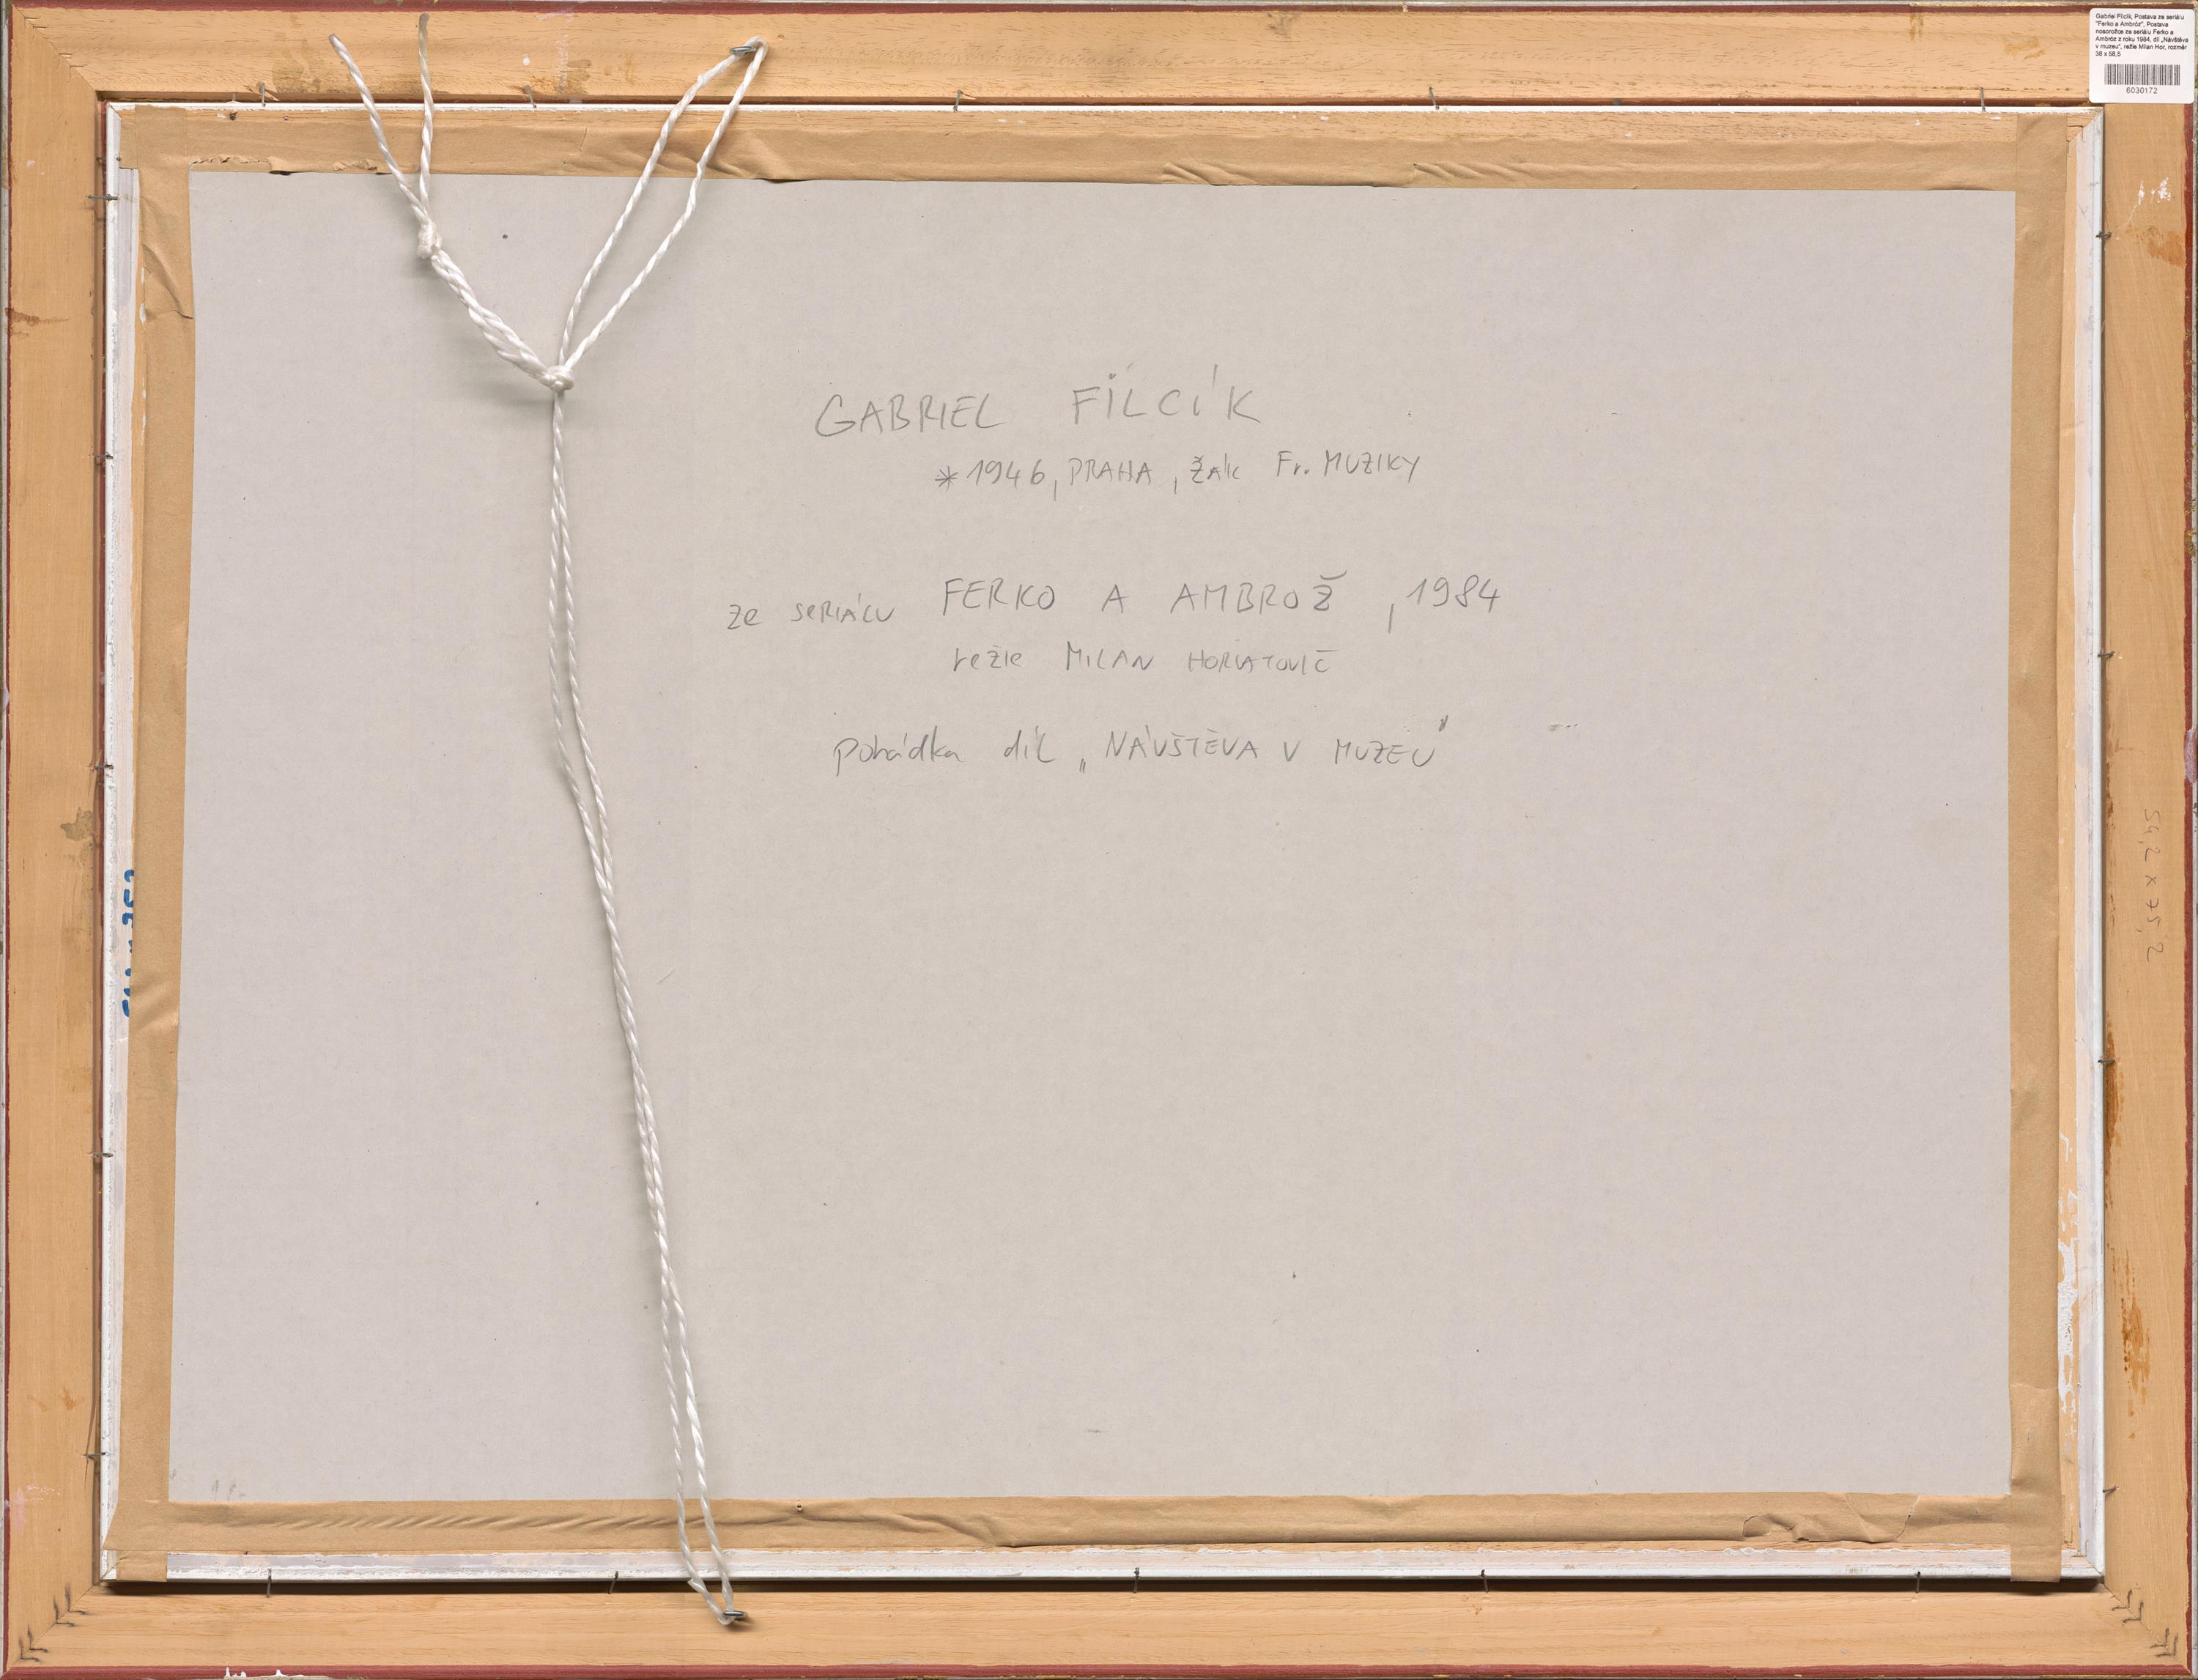 Gabriel Filcík, Postava ze seriálu
"Ferko a Ambróz", Postava
nosorožce ze seriálu Ferko a
Ambróz z roku 1984, díl „Návštěva
v muzeu", režie Milan Hor, rozměr
38 x 58,5
6030172
GABRIEL FILCÍK
*1946, PRAHA, žák Fr. MUZIKY
ze seriálu FERKO A AMBROŽ, 1984
režie MILAN HORVATOVIČ
pohádka díl „NÁVŠTĚVA V MUZEU"
54,2 x 75,2